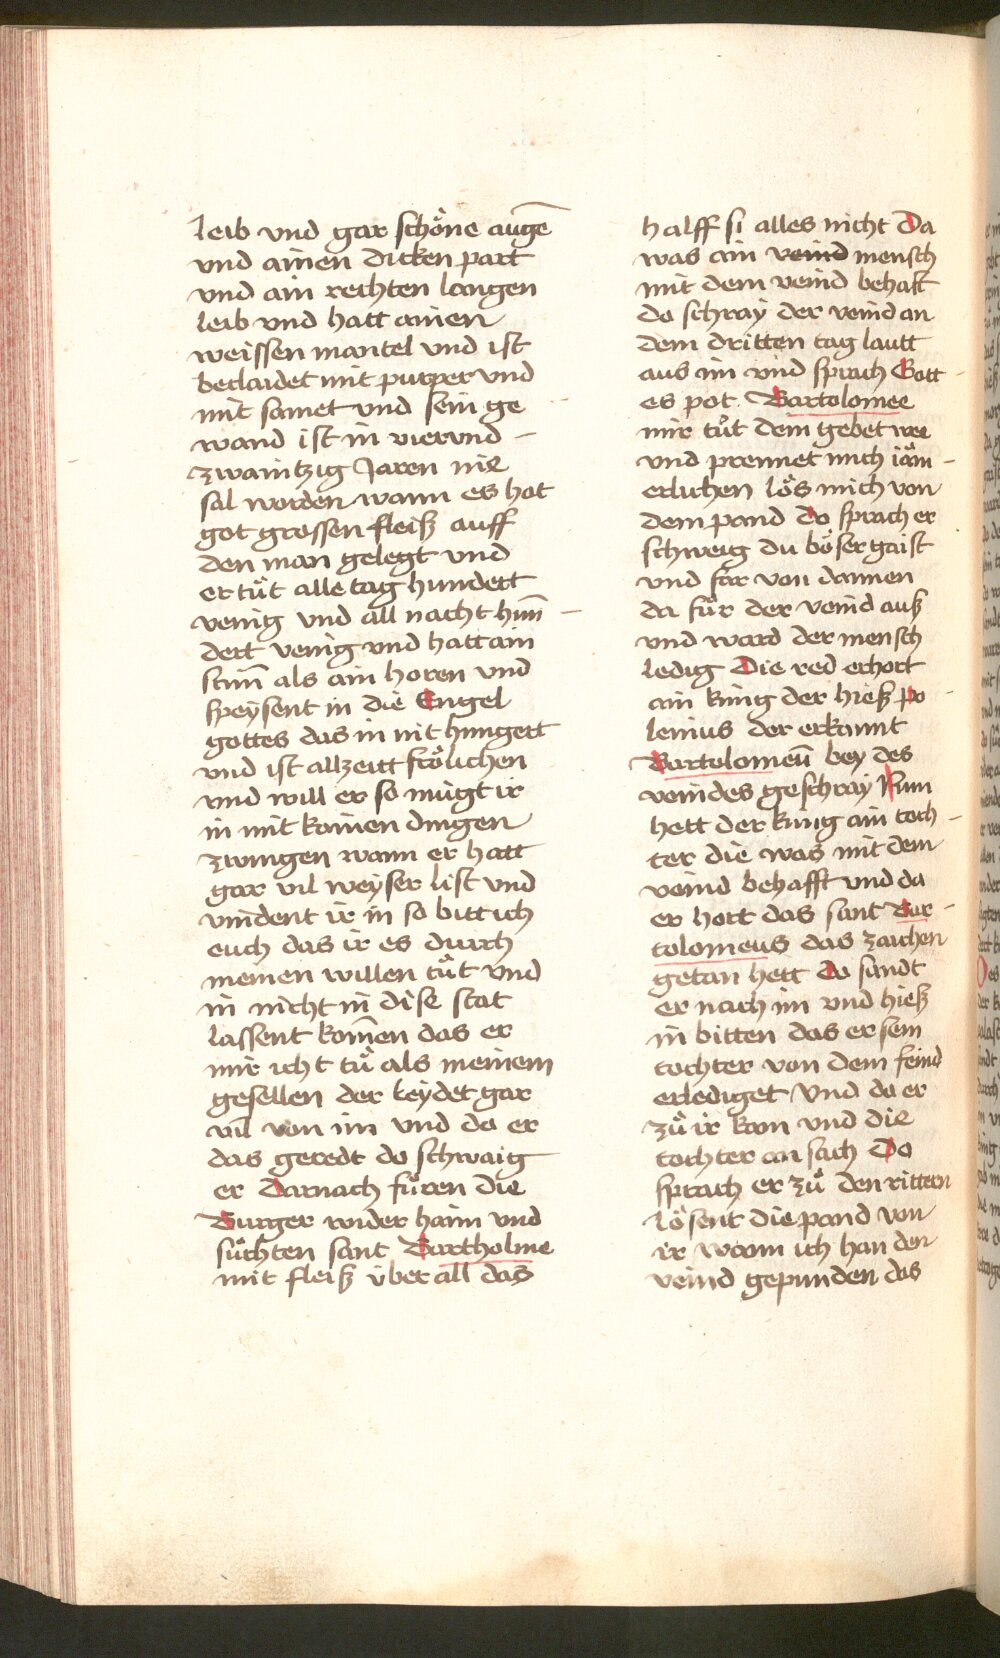 leib vnd gar schöne augē
vnd ainen dicken part
vnd ain rechten langen
leib vnd hatt ainen
weissen mantel vnd ist
beclaidet mit purper vnd
mit samet vnd sein ge
wand ist in viervnd –
zwaintzig Jaren nie
sal worden wann es hat
got grossen fleiß auff
den man gelegt vnd
er tůt alle tag hundert
venig vnd all nacht hun̄ –
dert venig vnd hatt ain
stim̄ als ain horen vnd
speÿsent in die Engel
gottes das in nit hungert
vnd ist allzeitt frölichen
vnd will er so mügt ir
in mit kainen dingen
zwingen wann er hatt
gar vil weyser list vnd
vindent ir in so bitt ich
euch das ir es durch
meinen willen tůt vnd
in nicht in dise stat
lassent kom̄en das er
mir icht tů als meinem
gesellen der leÿdet gar
vil von im vnd da er
das geredt do schwaig
er Darnach fůren die
Burger wider haim vnd
sůchten sant Bartholme
mit fleiß über all das
halff si alles nicht Da
was ain veind mensch
mit dem veind behaft
do schraÿ der veind an
dem dritten tag lautt
aus im vnd sprach Gott –
es pot Bartolomee
mir tůt dein gebet wee
vnd prennet mich iäm –
erlichen lös mich von
dem pand Do sprach er
schweig du böser gaist
vnd far von dannen
da fůr der veind auß
vnd ward der mensch
ledig Die red erhort
ain künig der hieß po –
lenius der erkannt
Bartolomeū bey des
veindes geschraÿ Nun
hett der künig ain toch –
ter die was mit dem
veind behafft vnd da
er hort das sant Bar –
tolomeus das zaichen
getan hett Da sandt
er nach im vnd hieß
in bitten das er sein
tochter von dem feind
erlediget Vnd da er
zů ir kom vnd die
tochter an sach Do
sprach er zů den rittern
lösent die pand von
ir wann ich han den
veind gepunden das